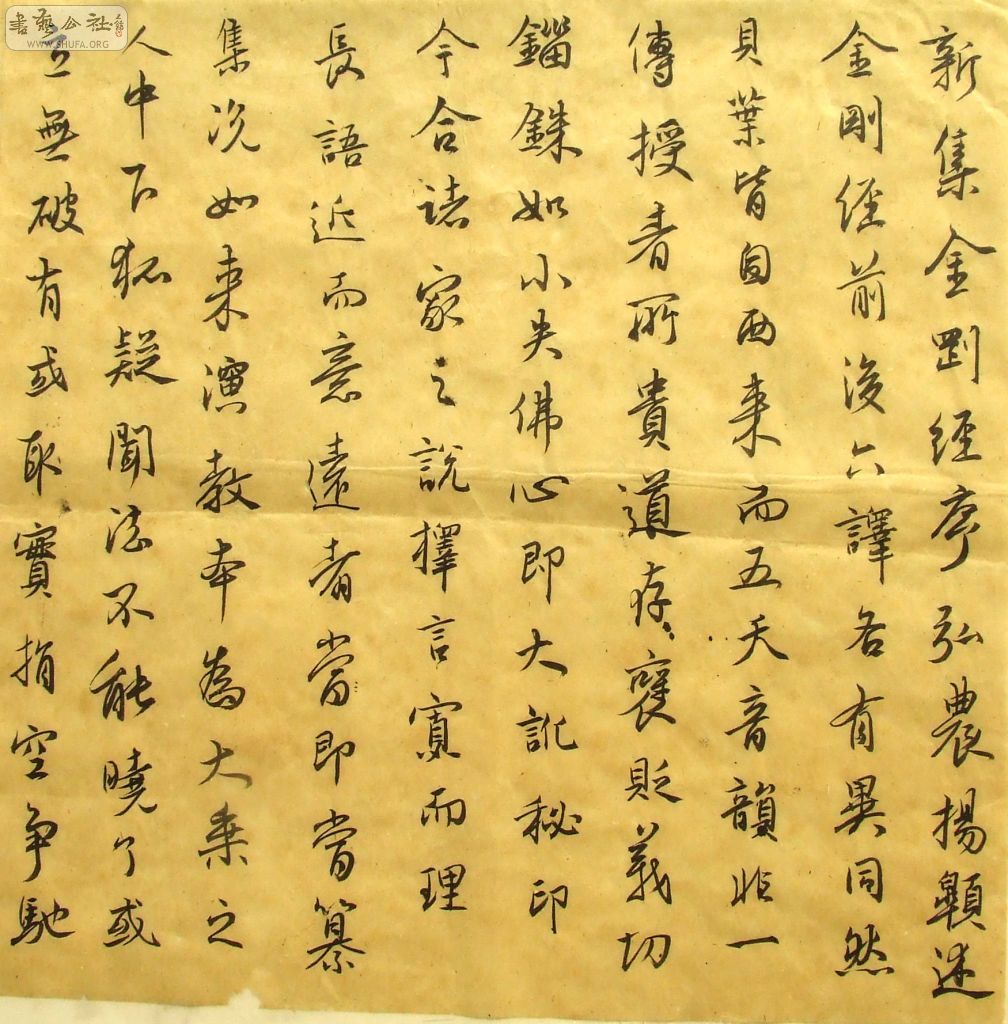 新集金剛經序弘農楊顗述
金剛經前後六譯各有異同然
貝葉皆自西来而五天音韻非一
傳授者所貴道存褒貶義切
錙銖如小失佛心即大訛秘印
今合諸家之說擇言寡而理
長語近而意遠者當即當纂
集况如来演教本為大乘之
人中下狐疑聞法不能曉了或
言無破有或取實捐空争馳
書藝公社
WWW.SHUFA.ORG